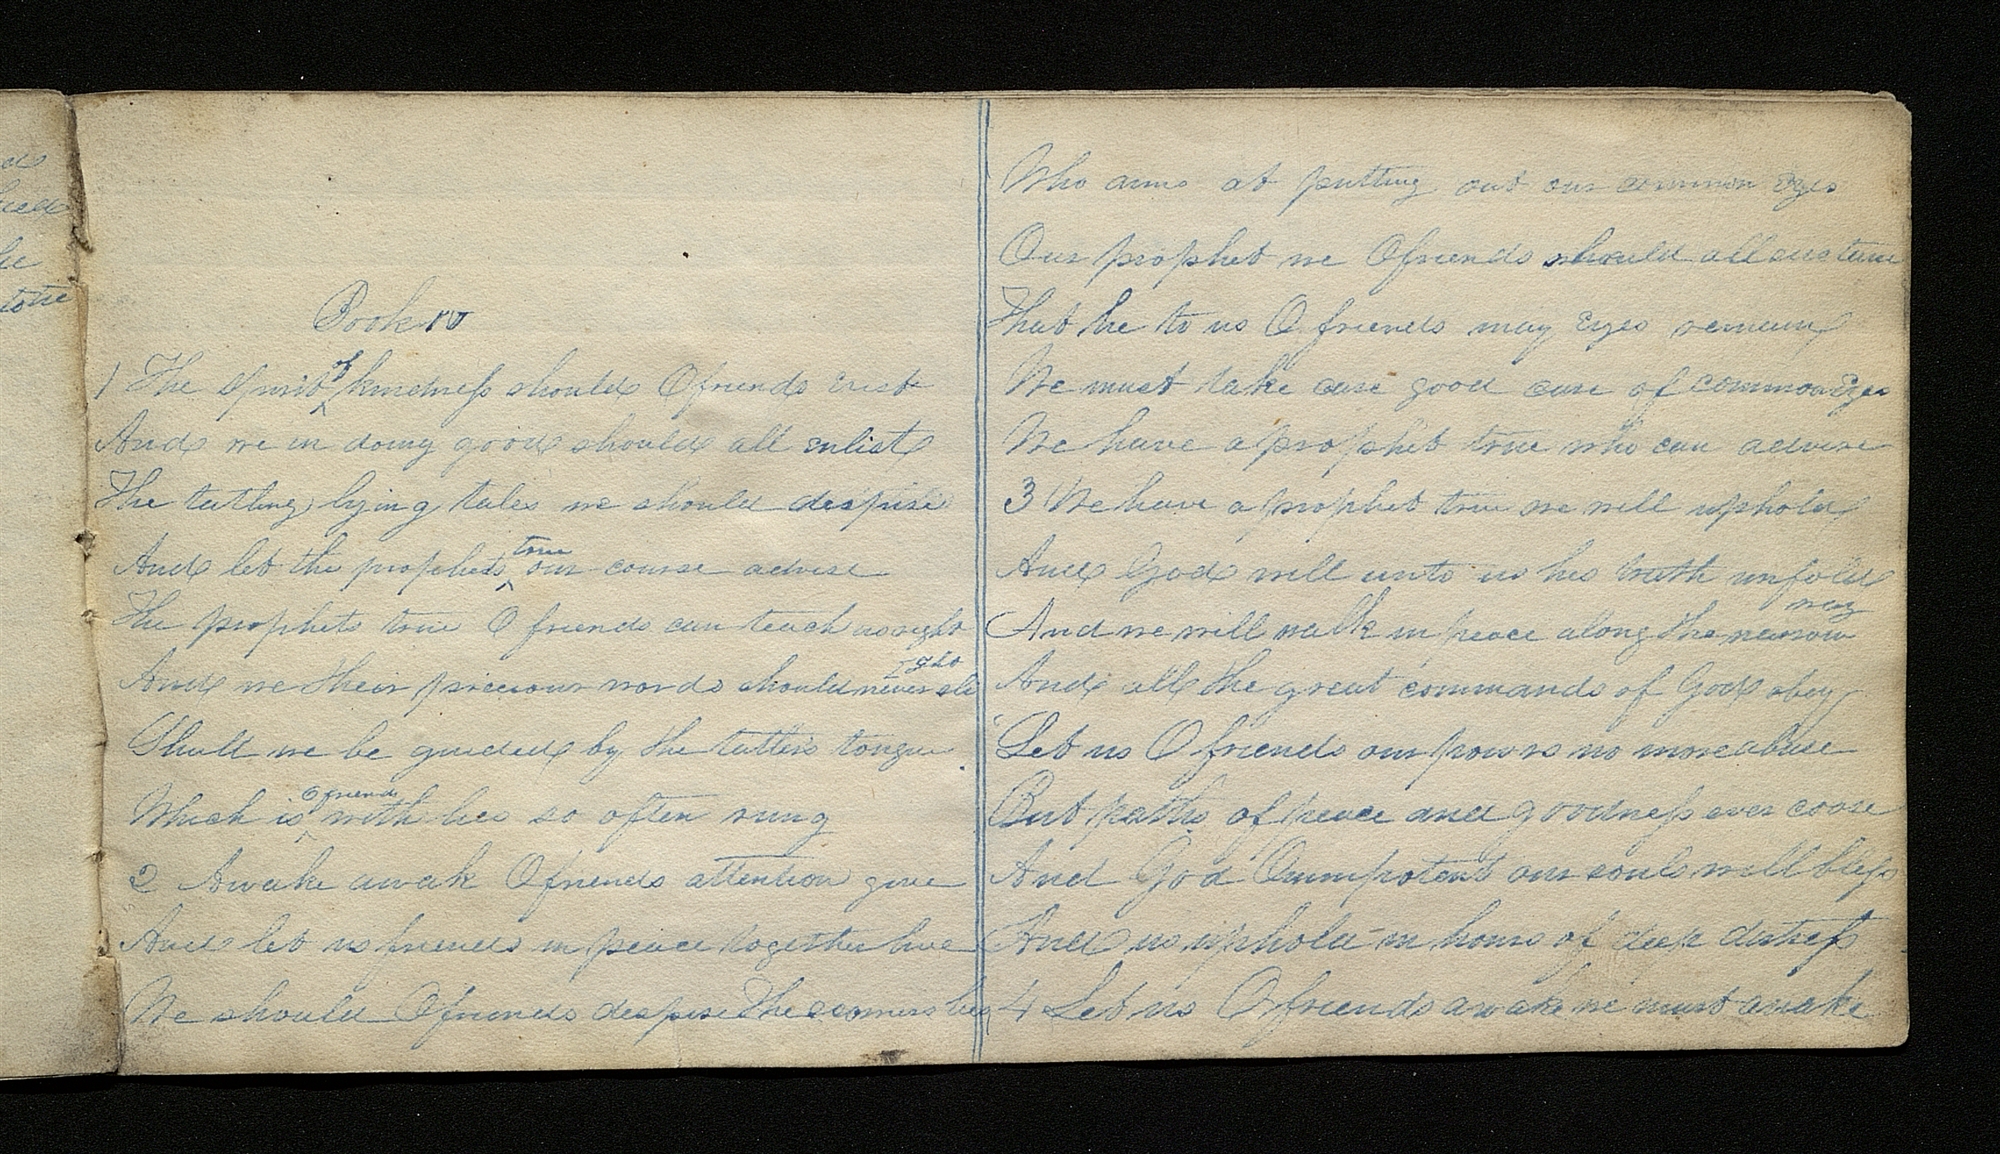 Book IV
1 The Spirit of kindness should O friends exist
And we in doing good should all enlist
The tatling lying tales we should despise
And let the prophets true our course advise
The prophets true O friends can teach us right
And we their precious words should never slight
Shall we be guided by the tatlers tongue
Which is O friends with lies so often rung
2 Awake awak O friends attention give
And let us friends in peace together live
We should O friends despise the scorners lies
Who aims at putting out our common Eyes
Our prophet we O friends should all sustain
That he to us O friends may Eyes remain
We must take care good care of common Eyes
We have a prophet true who can advise
3 We have a prophet true we will uphold
And God will unto us his truth unfold
And we will walk in peace along the narrow way
And all the great commands of God obey
Let us O friends our powrs no more abuse
But paths of peace and goodness ever coose
And God Omnipotent our souls will bless
And us uphold in hours of deep distress
4 Let us O friends awake we must awake